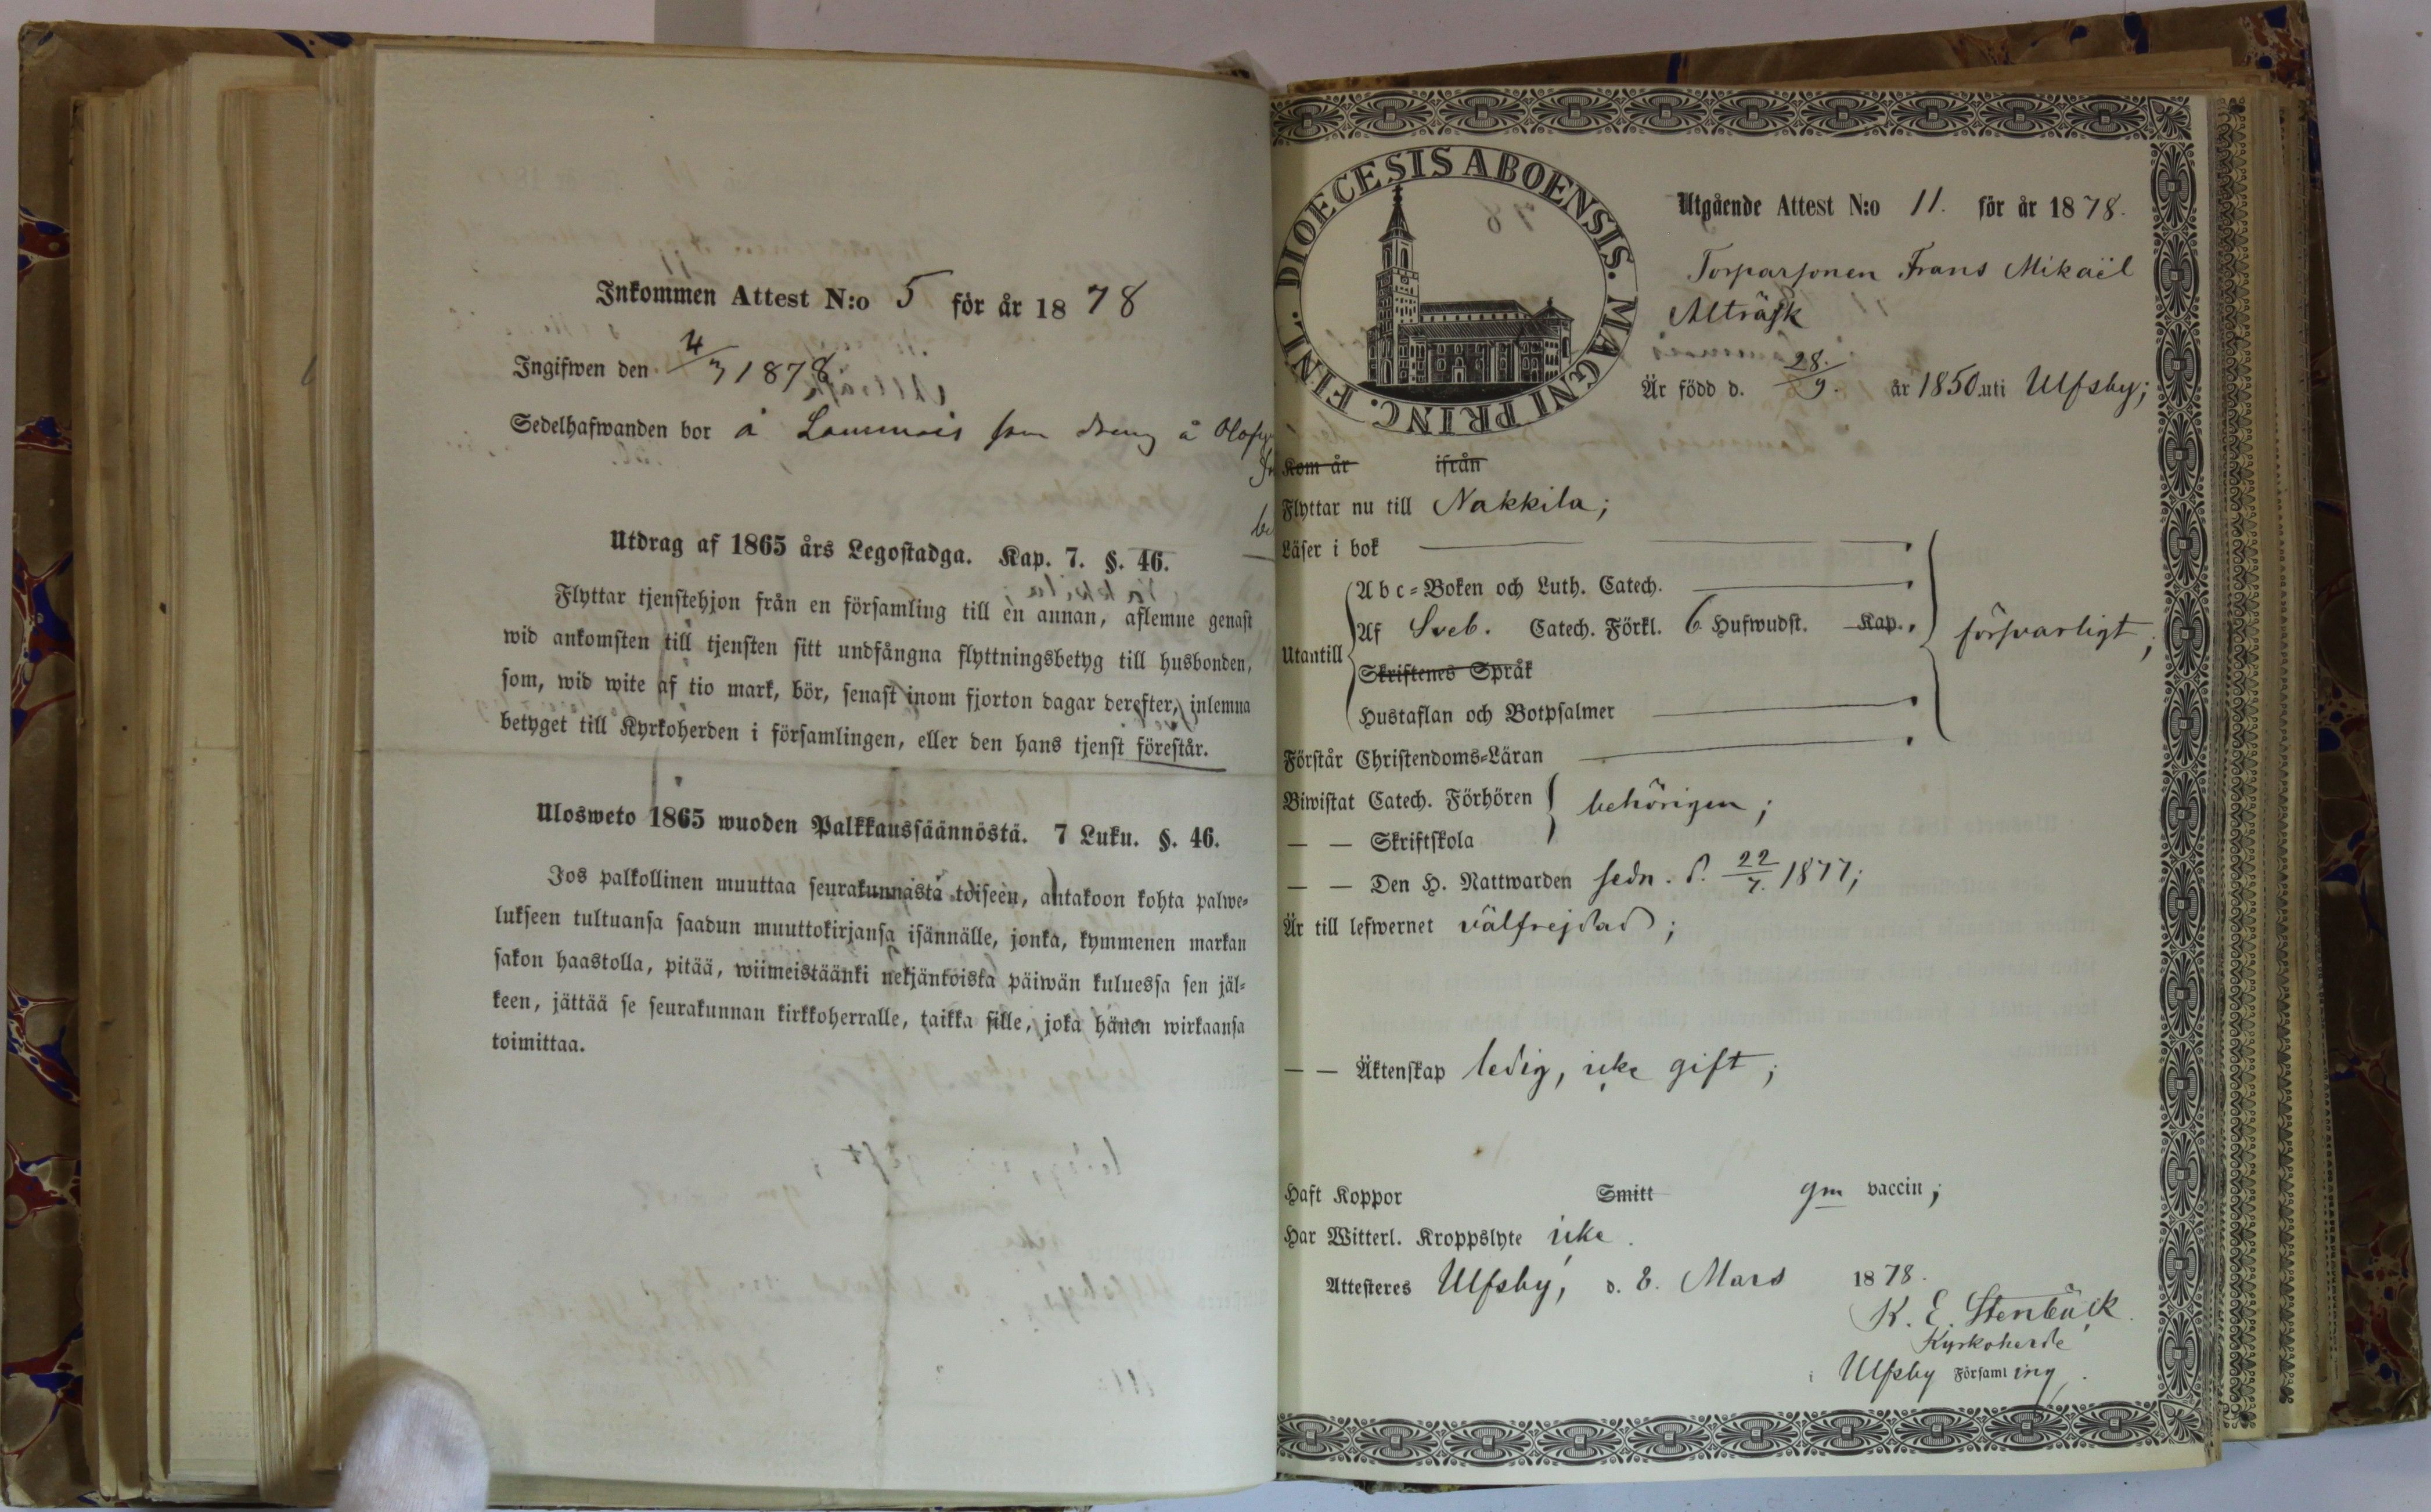 Inkommen Attest N:o 5 för år 1878
Ingifwen den 4/3 1878
Sedelhafwanden bor å Lammais som dreng å
Utdrag af 1865 års Legostadga. Kap. 7. §. 46.
Flyttar tjenstehjon från en församling till en annan, aflemne genast
wid ankomsten till tjensten sitt undfångna flyttningsbetyg till husbonden,
som, wid wite af tio mark, bör, senast inom fjorton dagar derefter, inlemna
betyget till Kyrkoherden i församlingen, eller den hans tjenst förestår.
Ulosweto 1865 wuoden Palkkaussäännöstä. 7 Luku. §. 46.
Jos palkollinen muuttaa seurakunnasta toiseen, antakoon kohta palwe-
lukseen tultuansa saadun muuttokirjansa isännälle, jonka, kymmenen markan
sakon haastolla, pitää, wiimeistäänki neljäntoista päiwän kuluessa sen jäl-
keen, jättää se seurakunnan kirkkoherralle, taikka sille, joka hänen wirkaansa
toimittaa.
DIOECESIS ABOENSIS. MAGNI PRINC. FINL.
Utgående Attest N:o 11. för år 1878.
Torparsonen Frans Mikaël
Alträsk
Är född d. 28/9. år 1850. uti Ulfsby;
Kom år ifrån
Flyttar nu till Nakkila;
Läser i bok
Utantill
Abc-Boken och Luth. Catech.
Af Sveb. Catech. Förkl. 6 Hufwudst. Kap.
försvarligt;
Skriftenes Språk
Hustaflan och Botpsalmer
Förstår Christendoms-Läran
Biwistat Catech. Förhören behörigen;
— — Skriftskola
— — Den H. Nattwarden sedn. d. 22/7. 1877;
Är till lefwernet välfrejdad;
— — Äktenskap ledig, icke gift;
Haft Koppor Smitt gm vaccin;
Har Witterl. Kroppslyte icke.
Attesteres Ulfsby, d. 8. Mars 1878.
K. E. Stenbäck.
Kyrkoherde
i Ulfsby Församling.